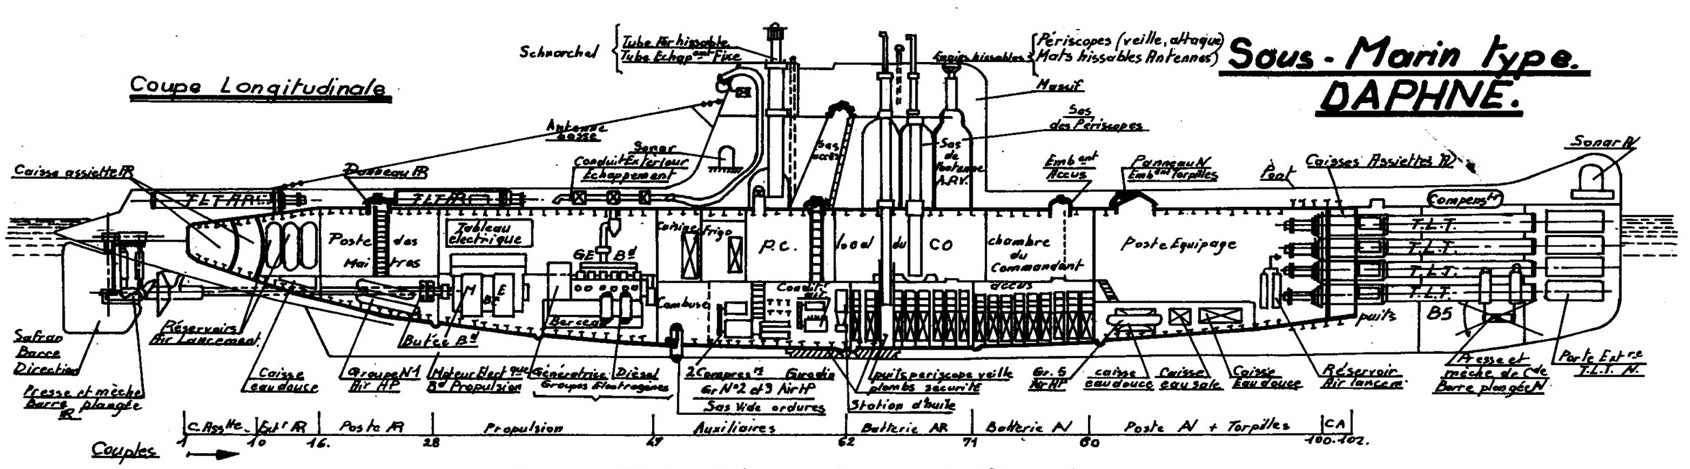 Sous-Marin type.
DAPHNE.
Coupe Longitudinale
Schnorchel
Tube Air hissable
Tube Echap.ent Fixe
Engins hissables
Périscopes (veille, attaque)
Mats hissables Antennes)
Massif
Sas
des Périscopes
Antenne
basse
Sonar
Conduit Extérieur
Echappement
Sas
accès
Sas
de
l'antenne
A.R.V.
Emb.ent
Accus
Panneau AV
Emb.ent Torpilles
Pont
Caisses Assiettes AV
Sonar AV
Caisse assiette AR
Panneau AR
T L T AR
T L T AR
Compens.tr
T.L.T.
T.L.T.
T.L.T.
T.L.T.
Poste des
Maitres
Tableau
électrique
GE Bd
Cuisine
frigo
P.C.
local du CO
chambre
du
Commandant
Poste Equipage
M
Bd
E
Berceau
Cambuse
Conduit
air
accus
puits
B5
Safran
Barre
Direction
Réservoirs
Air Lancement
Butée Bd
Presse et mèche
Barre plongée
AR
Caisse
eau douce
Groupe N°1
Air HP
Moteur Elect.que
Bd Propulsion
Génératrice
Diésel
Groupes Electrogènes
2 Compres.rs
Gr N°2 et 3 Air HP
Sas Vide ordures
Girodin
puits periscope veille
plombs sécurité
Station d'huile
Gr. 5
Air HP
caisse
eau douce
Caisse
eau sale
Caisse
Eau douce
Réservoir
Air lancem.t
Presse et
mèche de Cde
Barre plongée AV
Porte Ext.re
T.L.T. AV.
C. Ass.tte
Ext.r AR
Poste AR
Propulsion
Auxiliaires
Batterie AR
Batterie AV
Poste AV + Torpilles
CA
Couples
1
10
16.
28
47
62
71
80
100-102.